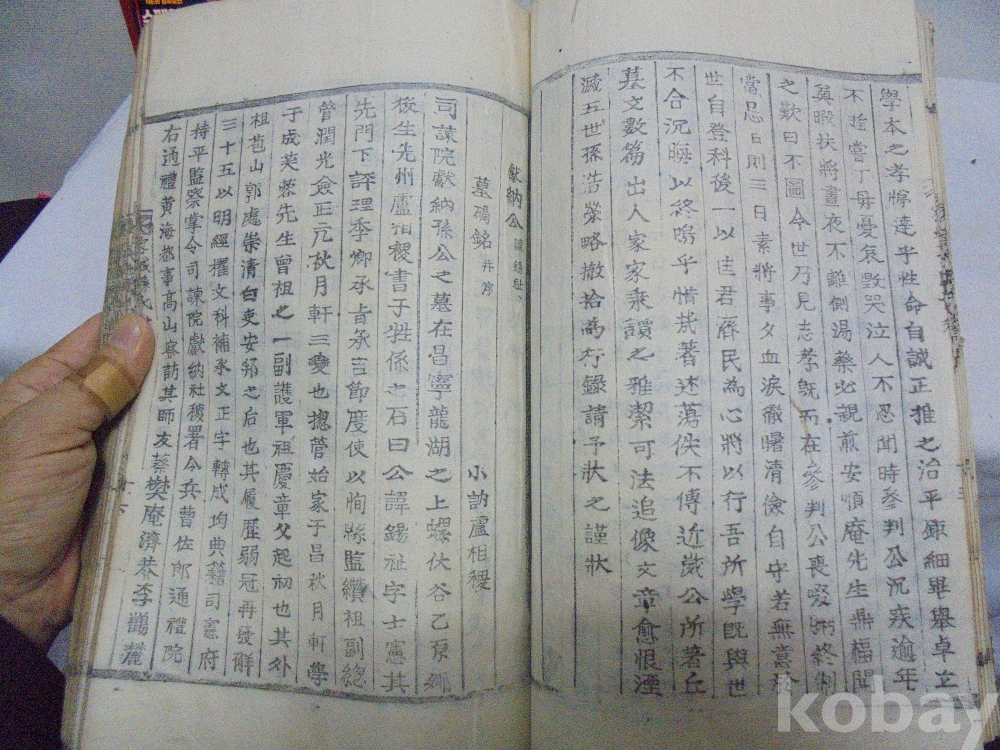 學本之孝悌達乎性命自誠正推之治平鉅細畢擧卓立
不捨嘗丁母憂哀毁哭泣人不忍聞時參判公沉疾逾年
莫暇扶將晝夜不離側湯藥必親煎安順庵先生鼎福聞
之歎曰不圖今世乃見志孝旣而在參判公喪啜粥終制
當忌日則三日素將事夕血淚徹曙清儉自守若無意於
世自登科後一以佳君齊民為心將以行吾所學旣與世
不合沉晦以終嗚乎惜哉著述蕩佚不傳近歲公所著丘
墓文數篇出人家家乘讀之雅潔可法追像文章愈恨湮
滅五世孫浩榮略撤拾為行錄請予狀之謹狀
獻納公
墓碣銘 幷序
小訥盧相稷
司諫院獻納孫公之墓在昌寧龍湖之上螺伏谷乙原鄉
後生光州盧相稷書于牲係之石曰公諱錫祉字士憲其
先門下評理季卿承旨永言節度使以恂縣監纘祖副總
管潤光僉正元秋月軒三變也摠管始家于昌秋月軒學
于成芙蓉先生曾祖之一副護軍祖慶章父起初也其外
祖苞山郭處崇清白吏安邨之后也其履歷弱冠再發解
三十五以明經擢文科補承文正字轉成均典籍司憲府
持平監察掌令司諫院獻納社稷署令兵曹佐郎通禮院
右通禮黃海都事高山察訪其師友蔡樊庵濟恭李鶴麓
kobay